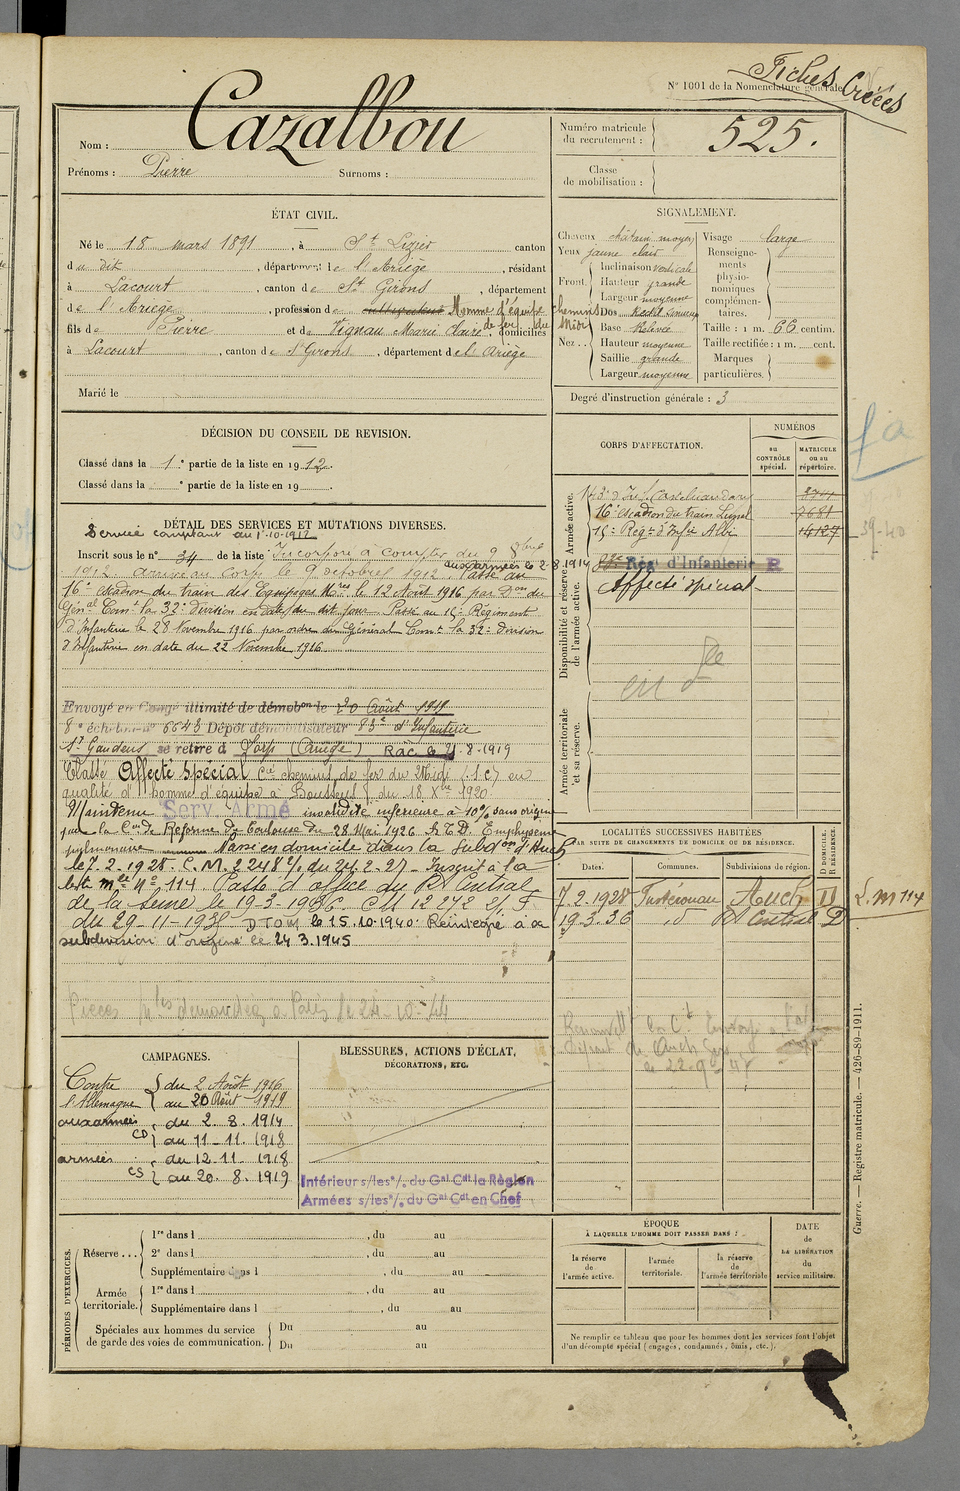 Fiches Créées
N° 1001 de la Nomenclature générale.
Nom : Cazalbou
Prénoms : Pierre Surnoms :
Numéro matricule du recrutement : 525.
Classe de mobilisation :
ÉTAT CIVIL.
Né le 18 mars 1891, à St Lizier canton
du dit, département de l'Ariège, résidant
à Lacourt, canton de St Girons, département
de l'Ariège, profession de Homme d'équipe chemins de fer du Midi
fils de Pierre et de Vignau Marie Claire, domiciliés
à Lacourt, canton de St Girons, département de l'Ariège
Marié le
SIGNALEMENT.
Cheveux châtain moyen
Yeux jaune clair
Front. Inclinaison verticale
Hauteur grande
Largeur moyenne
Nez.. Dos
Base
Hauteur moyenne
Saillie grande
Largeur moyenne
Visage large
Renseignements physionomiques complémentaires.
Taille : 1 m. 66 centim.
Taille rectifiée : 1 m. cent.
Marques particulières.
Degré d'instruction générale : 3
DÉCISION DU CONSEIL DE REVISION.
Classé dans la 1e partie de la liste en 1912.
Classé dans la e partie de la liste en 19
DÉTAIL DES SERVICES ET MUTATIONS DIVERSES.
Service comptant du 1-10-1912
Inscrit sous le n° 34 de la liste Incorporé à compter du 9 8bre
1912 arrivé au corps le 9 octobre 1912. aux armées le 2-8-1914 Passé au
16e escadron du Train des Equipages Mres le 12 Août 1916 par Don du
Génal Comt la 32e division en date du dit jour. Passé au 15e Régiment
d'Infanterie le 28 Novembre 1916 par ordre du Général Comt la 32e division
d'Infanterie en date du 22 Novembre 1916.
Envoyé en Congé illimité de démobon le 20 Août 1919
8e échelon n° 6643 Dépôt démobilisateur 83e d'Infanterie
St Gaudens se retire à Lorp (Ariège) Rac le 21-8-1919
Classé Affecté Spécial Cie chemins de fer du Midi (S.C.) en
qualité d'homme d'équipe à Boussens du 18 Xbre 1920
Maintenu Serv. Armé invalidité inférieure à 10% sans origine
par la Con de Réforme de Toulouse du 28 Mai 1926 Emphysème
pulmonaire Passé en domicile dans la Subdon d'Auch
le 7.2.1928. C.M. 2248 2/1 du 24.2.27. Inscrit à la
liste mle n° 114. Passé d'office du R. Central
de la Seine le 19-3-1936. CM 12272 2/F
du 29-11-1935 DTOM le 15.10.1940 Réintégré à sa
subdivision d'origine le 24.3.1945
Pièces mles demandées à Paris le 24-10-44
CORPS D'AFFECTATION.
NUMÉROS
au CONTRÔLE spécial.
MATRICULE ou au répertoire.
Armée active.
143e d'Inf. Castelnaudary
16e escadron du train Lunel 7681
15e Régt d'Infie Albi 14127
Disponibilité et réserve de l'armée active.
Régt d'Infanterie R
Affecté spécial
Armée territoriale et sa réserve.
39-40
LOCALITÉS SUCCESSIVES HABITÉES
PAR SUITE DE CHANGEMENTS DE DOMICILE OU DE RÉSIDENCE.
Dates. Communes. Subdivisions de région. D DOMICILE. R RÉSIDENCE.
7.2.1928 Auch D
19.3.36 id R Central D
L.m 114
CAMPAGNES.
Contre l'Allemagne du 2 Août 1916
au 20 Août 1919
aux armées CD du 2.8.1914
au 11-11.1918
armées CS du 12.11.1918
au 20.8.1919
BLESSURES, ACTIONS D'ÉCLAT,
DÉCORATIONS, ETC.
Intérieur s/les o/. du Gal Cdt la Région
Armées s/les o/. du Gal Cdt en Chef
Guerre. — Registre matricule. — 426-89-1911.
PÉRIODES D'EXERCICES.
Réserve... 1re dans l , du au
2e dans l , du au
Supplémentaire dans l , du au
Armée territoriale. 1re dans l , du au
Supplémentaire dans l , du au
Spéciales aux hommes du service de garde des voies de communication. Du au
Du au
ÉPOQUE
À LAQUELLE L'HOMME DOIT PASSER DANS :
la réserve de l'armée active.
l'armée territoriale.
la réserve de l'armée territoriale
DATE de LA LIBÉRATION du service militaire.
Ne remplir ce tableau que pour les hommes dont les services font l'objet
d'un décompte spécial (engagés, condamnés, omis, etc.).